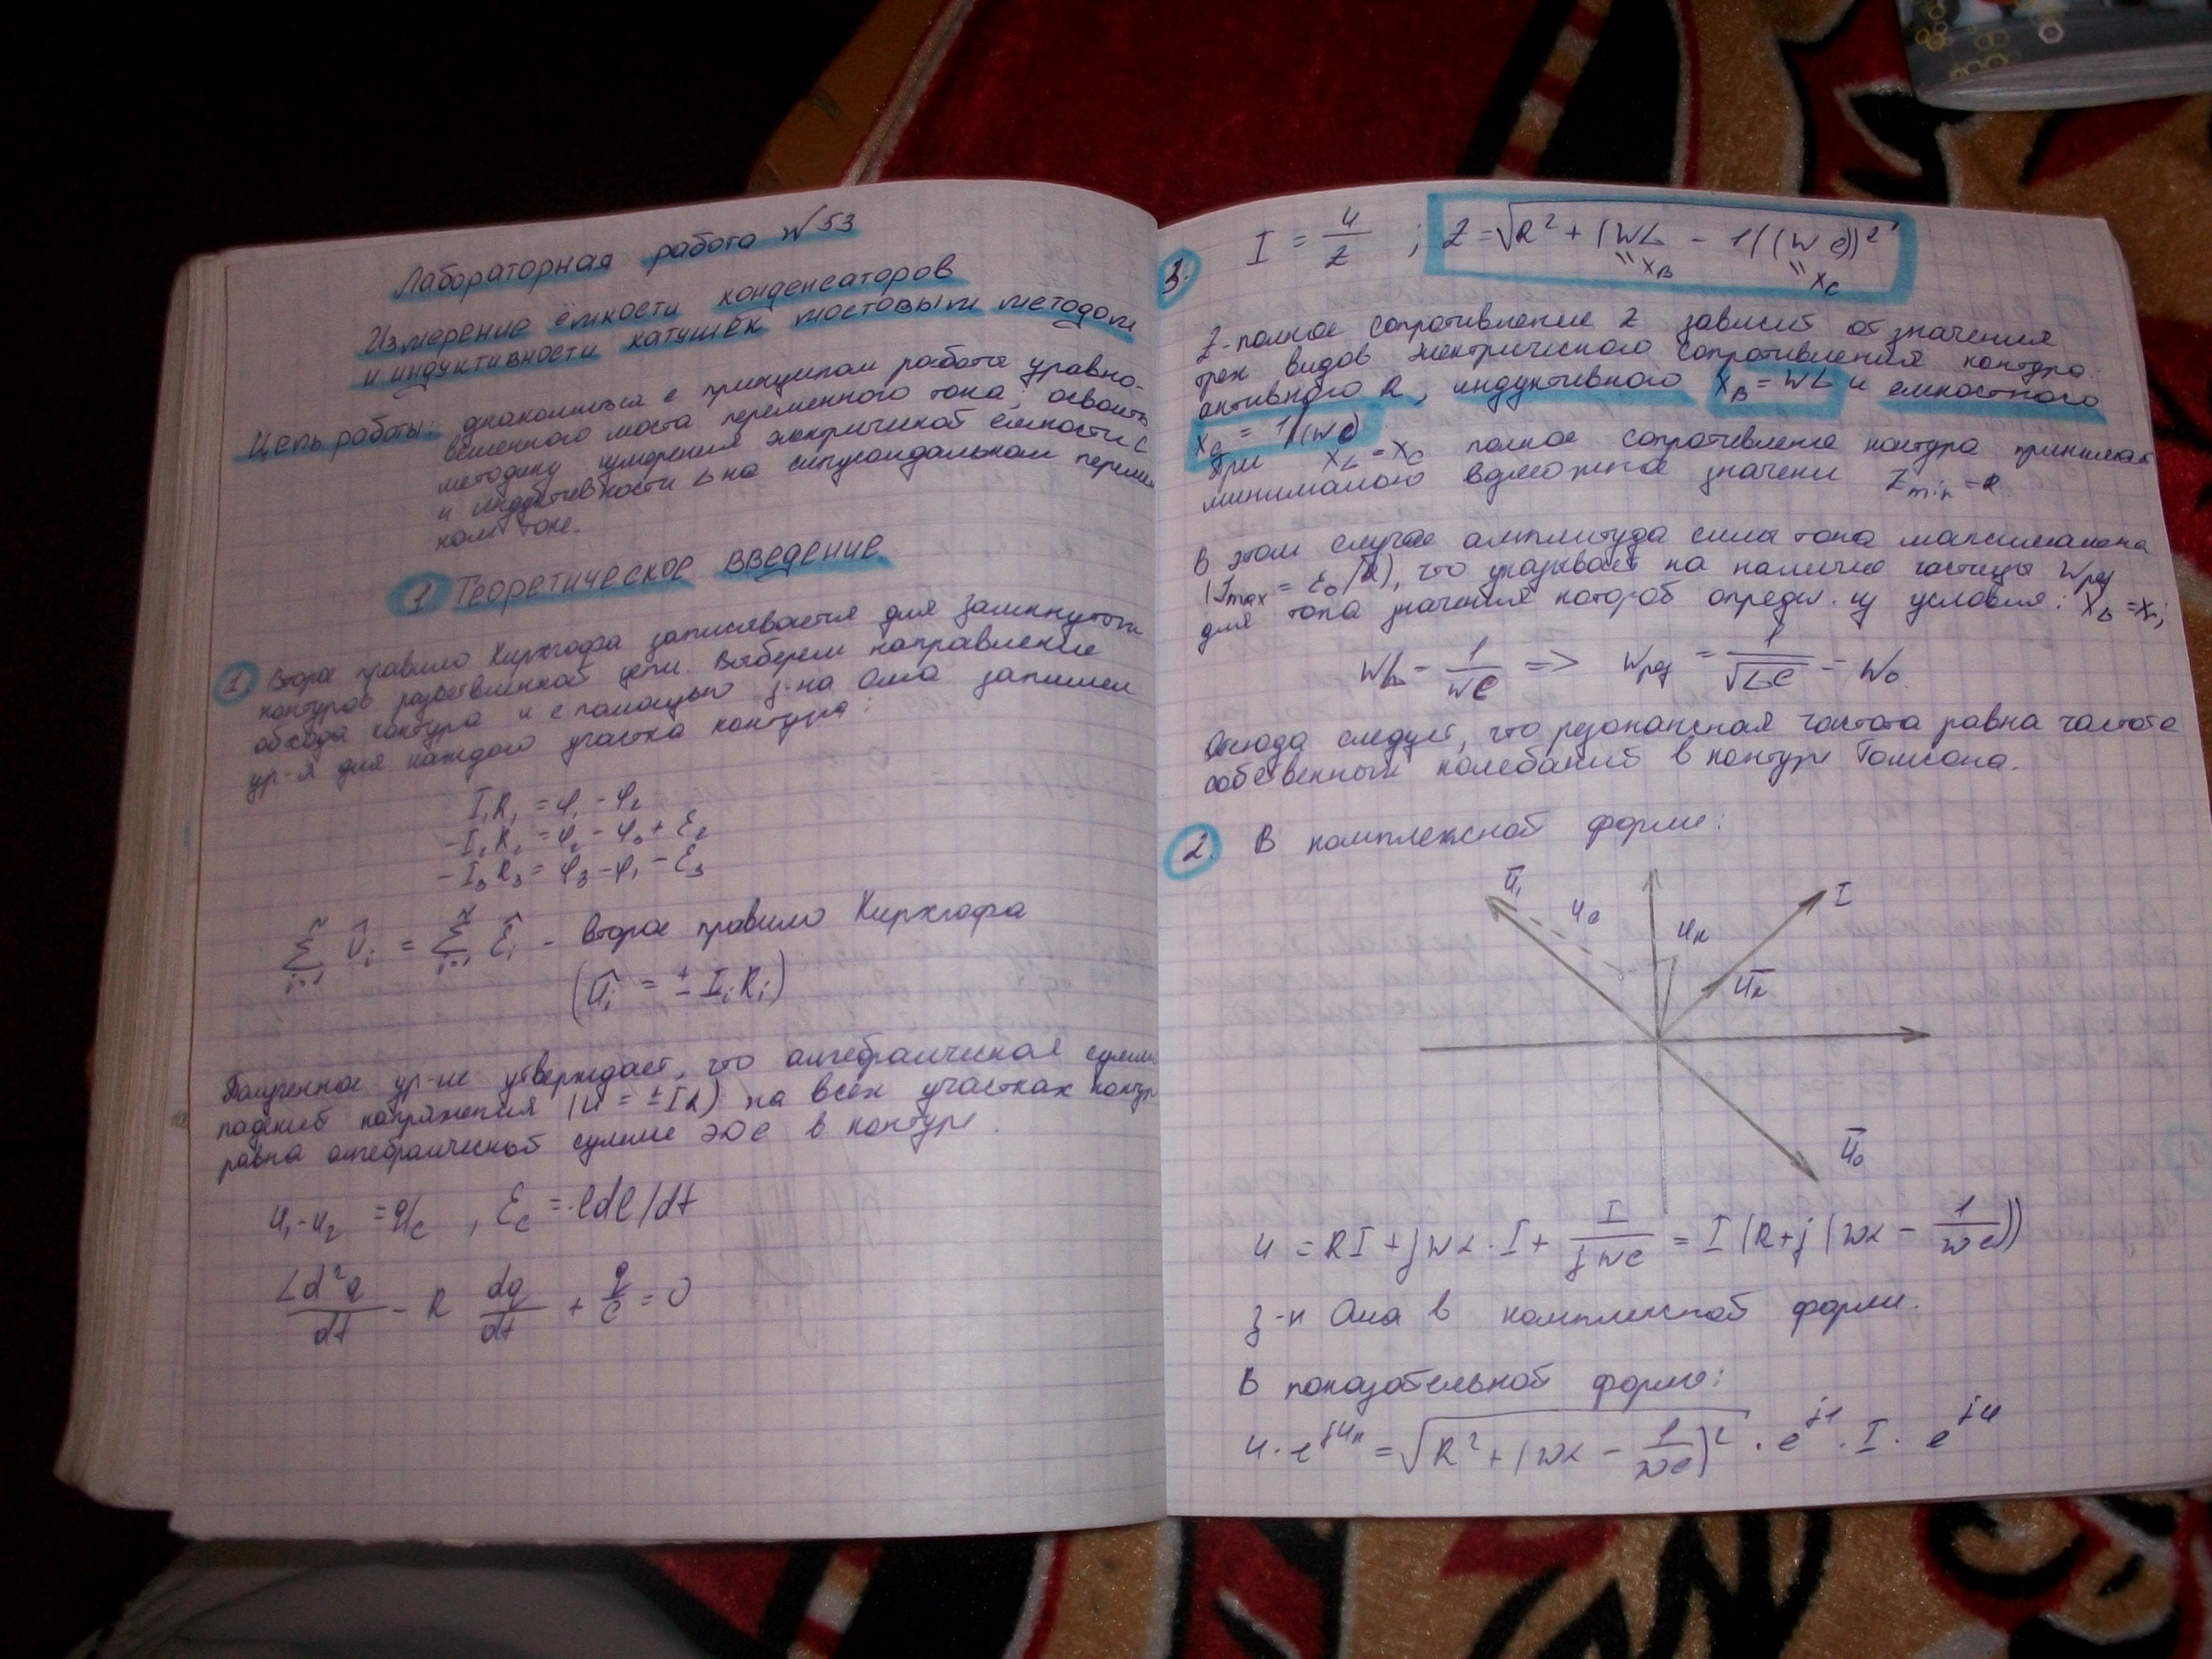 Лабораторная работа №53
Измерение ёмкости конденсаторов
и индуктивности катушек мостовым методом
Цель работы: ознакомиться с принципом работы уравно-
вешенного моста переменного тока; освоить
методику измерения электрической ёмкости C
и индуктивности L на синусоидальном перемен
ном токе.
1 Теоретическое введение
1. Второе правило Кирхгофа записывается для замкнутых
контуров разветвленной цепи. Выберем направление
обхода контура и с помощью з-на Ома запишем
ур-я для каждого участка контура:
I₁R₁ = φ₁ - φ₂
-I₂R₂ = φ₂ - φ₃ + ℰ₂
-I₃R₃ = φ₃ - φ₁ - ℰ₃
∑ Ûᵢ = ∑ ℰ̂ᵢ - Второе правило Кирхгофа
(Ûᵢ = ± IᵢRᵢ)
Полученное ур-ие утверждает, что алгебраическая сумма
падений напряжения (U = ±IR) на всех участках контур
равна алгебраической сумме ЭДС в контуре.
U₁-U₂ = q/c , ℰc = -ldl/dt
Ld²q/dt - R dq/dt + q/c = 0
3. I = U/Z ; Z = √R² + (WL - 1/(WC))²
"X_B "X_C
Z-полное сопротивление Z зависит от значения
трех видов электрического сопротивления контура:
активного R, индуктивного X_B = WL и емкостного
X_C = 1/(WC)
При X_L = X_C полное сопротивление контура принимает
минимального возможное значени Z_min = R.
В этом случае амплитуда силы тока максимальна
(I_max = ℰ₀/R), что указывает на наличие частицы W_рез
для тока значения которой опредил. из условия: X_L = X_C;
WL = 1/WC => W_рез = 1/√LC = W₀.
Отсюда следует, что резонансная частота равна частоте
собственных колебаний в контуре Томсона.
2. В комплексной форме:
U̅₁
U_c
I
U_R
U̅₀
U = RI + jWL·I + I/jWC = I(R+j(WL - 1/WC))
з-н Ома в комплексной форме.
В показательной форме:
U·e^jUн = √R² + (WL - 1/WC)² · e^j1 · I · e^jU